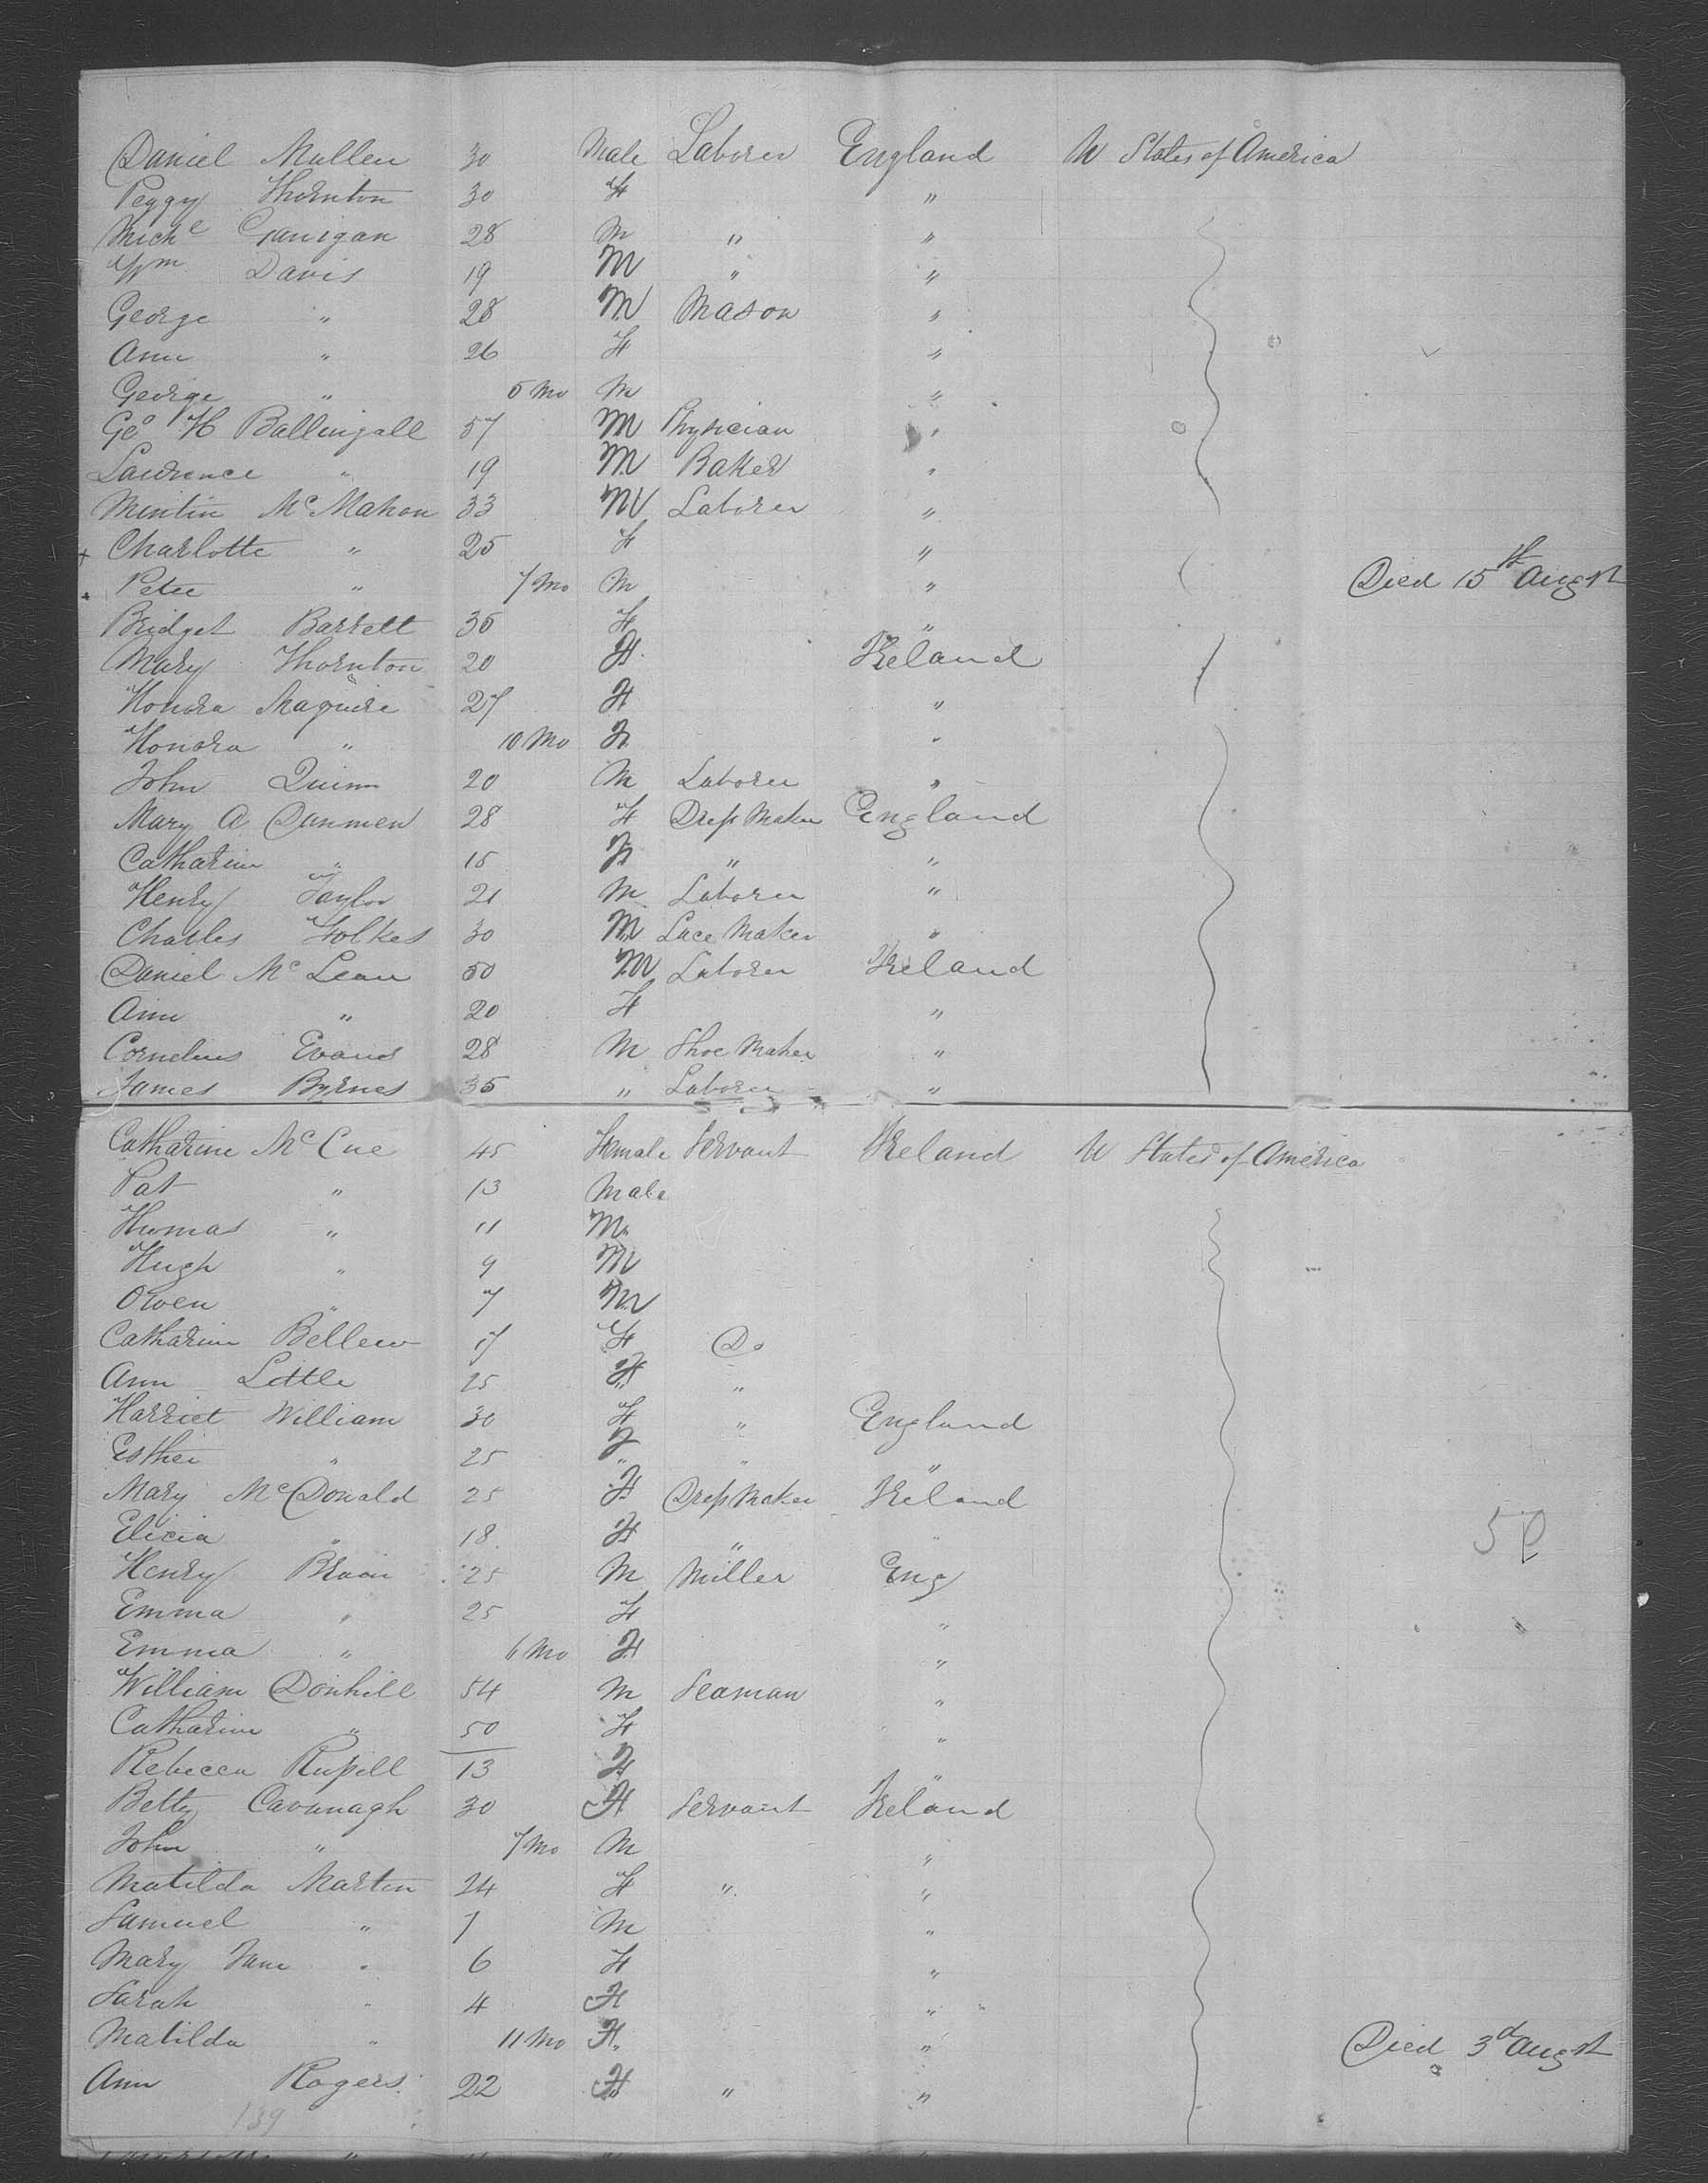 Daniel Mullen 30 Male Laborer England U States of America
Peggy Thornton 30 F "
Michl Ganigan 28 M " "
Wm Davis 19 M " "
George " 28 M Mason "
Ann " 26 F "
George " 5 Mo M "
Geo H Ballingall 57 M Physician "
Lawrence " 19 M Baker "
Mintin McMahon 33 M Laborer "
+ Charlotte " 25 F "
Peter " 7 Mo M " Died 15th Augst
Bridget Barrett 35 F "
Mary Thornton 20 F Ireland
Honora Maguire 27 F "
Honora " 10 Mo F "
John Quinn 20 M Laborer "
Mary A Danmen 28 F Dress Maker England
Catharine " 15 F " "
Henry Taylor 21 M Laborer "
Charles Folkes 30 M Lace Maker "
Daniel McLean 50 M Laborer Ireland
Ann " 20 F "
Cornelius Evans 28 M Shoe Maker "
James Byrnes 35 " Laborer "
Catharine McCue 45 Female Servant Ireland U States of America
Pat " 13 Male
Thomas " 11 M
Hugh " 9 M
Owen " 7 M
Catharine Bellew 17 F Do
Ann Little 25 F "
Harriet William 30 F " England
Esther " 25 F " "
Mary McDonald 25 F Dress Maker Ireland
Elicia " 18 F " "
Henry 25 M Miller Eng
Emma " 25 F "
Emma " 6 Mo F "
William Donhill 54 M Seaman "
Catharine " 50 F "
Rebecca Russell 13 F "
Betty Cavanagh 30 F Servant Ireland
John " 7 Mo M "
Matilda Martin 24 F " "
Samuel " 7 M "
Mary Jane " 6 F "
Sarah " 4 F "
Matilda " 11 Mo F " Died 3d Augst
Ann Rogers 22 F " "
139